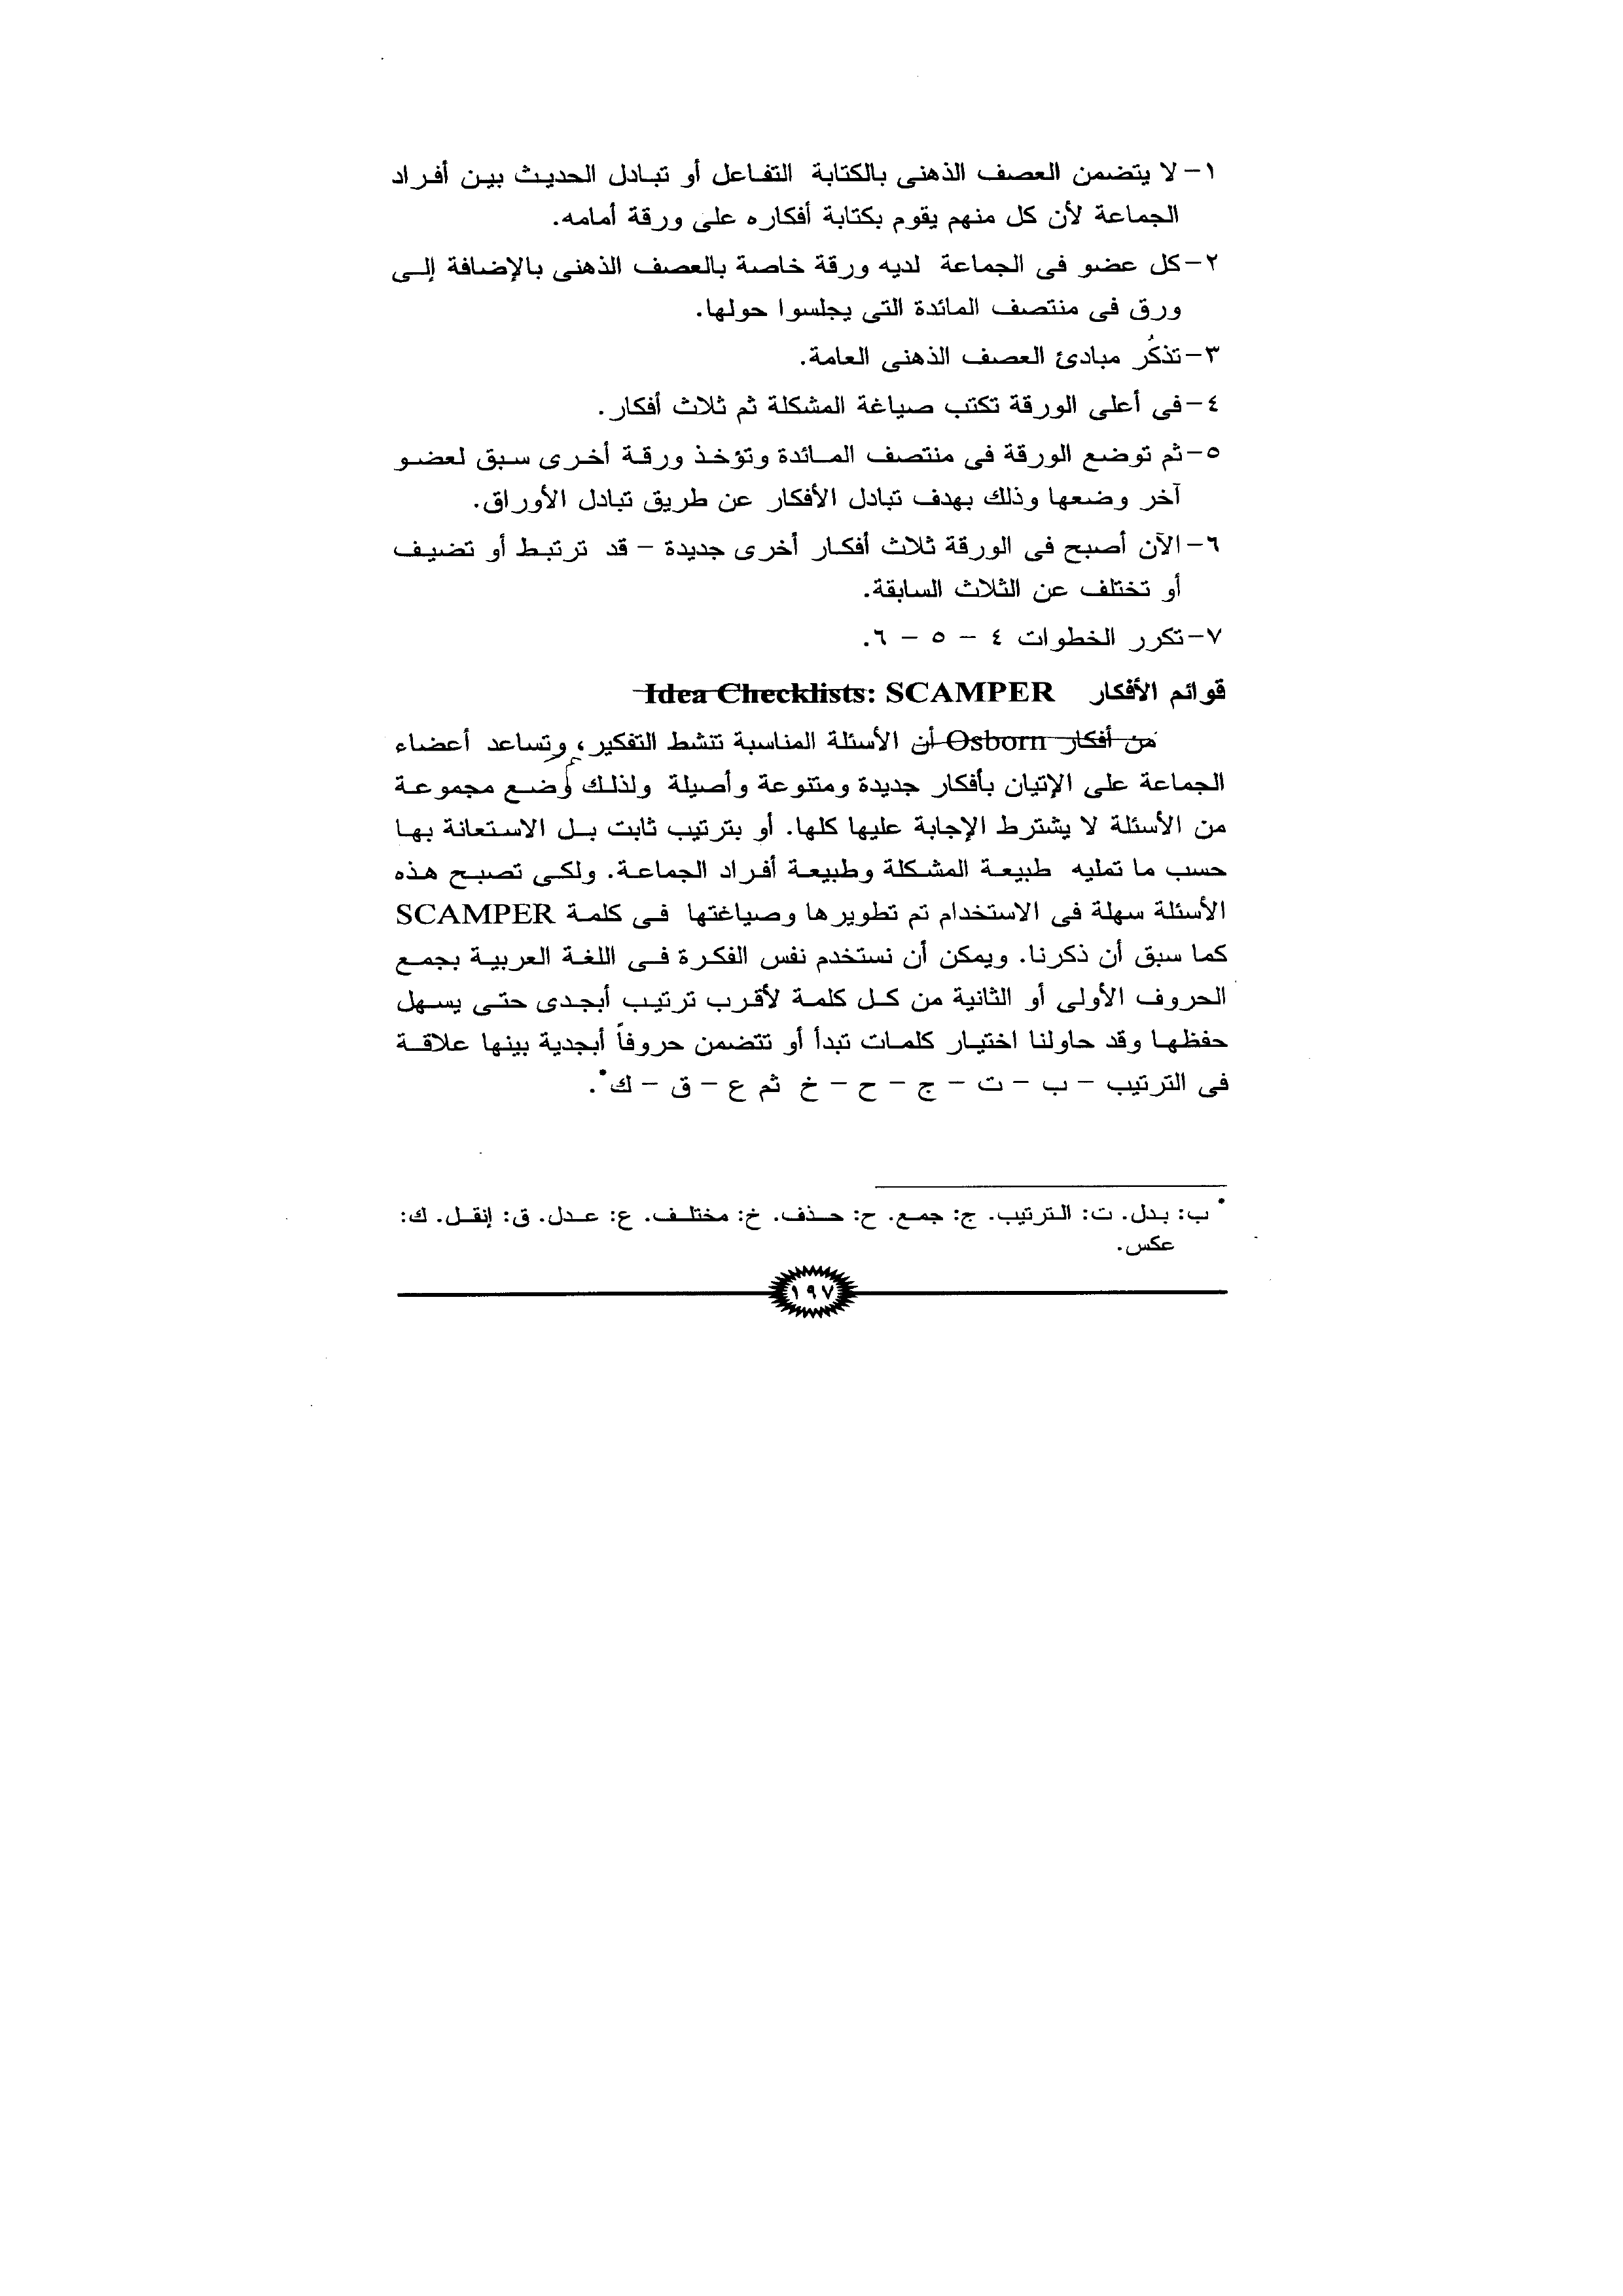 ١- لا يتضمن العصف الذهنى بالكتابة التفاعل أو تبادل الحديث بين أفراد
الجماعة لأن كل منهم يقوم بكتابة أفكاره على ورقة أمامه.
٢- كل عضو فى الجماعة لديه ورقة خاصة بالعصف الذهنى بالإضافة إلى
ورق فى منتصف المائدة التى يجلسوا حولها.
٣- تذكُر مبادئ العصف الذهنى العامة.
٤- فى أعلى الورقة تكتب صياغة المشكلة ثم ثلاث أفكار.
٥- ثم توضع الورقة فى منتصف المائدة وتؤخذ ورقة أخرى سبق لعضو
آخر وضعها وذلك بهدف تبادل الأفكار عن طريق تبادل الأوراق.
٦- الآن أصبح فى الورقة ثلاث أفكار أخرى جديدة – قد ترتبط أو تضيف
أو تختلف عن الثلاث السابقة.
٧- تكرر الخطوات ٤ – ٥ – ٦.
قوائم الأفكار Idea Checklists: SCAMPER
من أفكار Osborn أن الأسئلة المناسبة تنشط التفكير، وتساعد أعضاء
الجماعة على الإتيان بأفكار جديدة ومتنوعة وأصيلة ولذلك وُضع مجموعة
من الأسئلة لا يشترط الإجابة عليها كلها. أو بترتيب ثابت بل الاستعانة بها
حسب ما تمليه طبيعة المشكلة وطبيعة أفراد الجماعة. ولكى تصبح هذه
الأسئلة سهلة فى الاستخدام تم تطويرها وصياغتها فى كلمة SCAMPER
كما سبق أن ذكرنا. ويمكن أن نستخدم نفس الفكرة فى اللغة العربية بجمع
الحروف الأولى أو الثانية من كل كلمة لأقرب ترتيب أبجدى حتى يسهل
حفظها وقد حاولنا اختيار كلمات تبدأ أو تتضمن حروفاً أبجدية بينها علاقة
فى الترتيب – ب – ت – ج – ح – خ ثم ع – ق – ك•.
• ب: بدل. ت: الترتيب. ج: جمع. ح: حذف. خ: مختلف. ع: عدل. ق: إنقل. ك:
عكس.
١٩٧